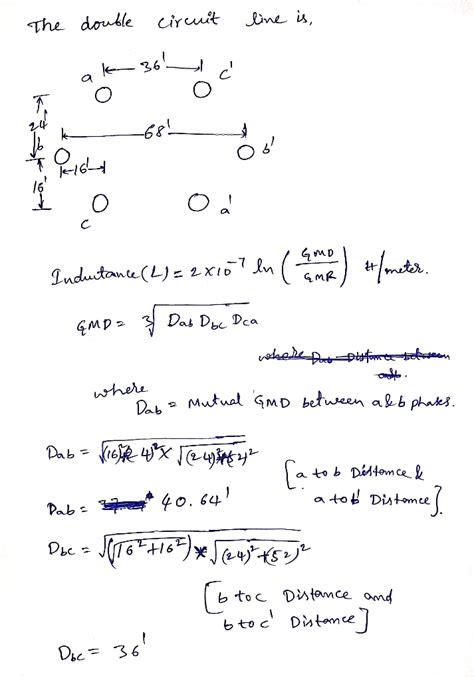 The double circuit line is,
a 36' c'
24'
b 68' b'
16'
16'
c a'
Inductance (L) = 2×10⁻⁷ ln (GMD/GMR) H/meter.
GMD = ∛(Dab Dbc Dca)
where Dab = Distance between
where
Dab = Mutual GMD between a&b phases.
Dab = √(√(16)²+(24)² × √(24)²+(52)²
[a to b Distance &
a to b' Distance].
Dab = 40.64'
Dbc = √(√(16²+16²) × √(24)²+(52)²
[b to c Distance and
b to c' Distance]
Dbc = 36'